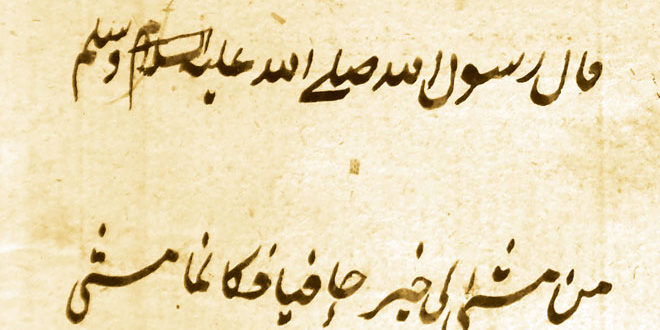 قال رسول الله صلے الله عليه السلام وسلم
من مشى الى خير حافيا فكانما مشى